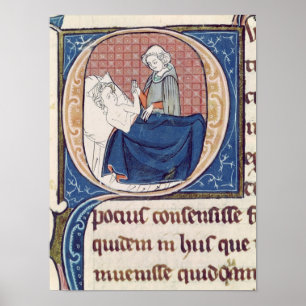 pocius consensisse
quidem in hiis que
inuenisse quidqam